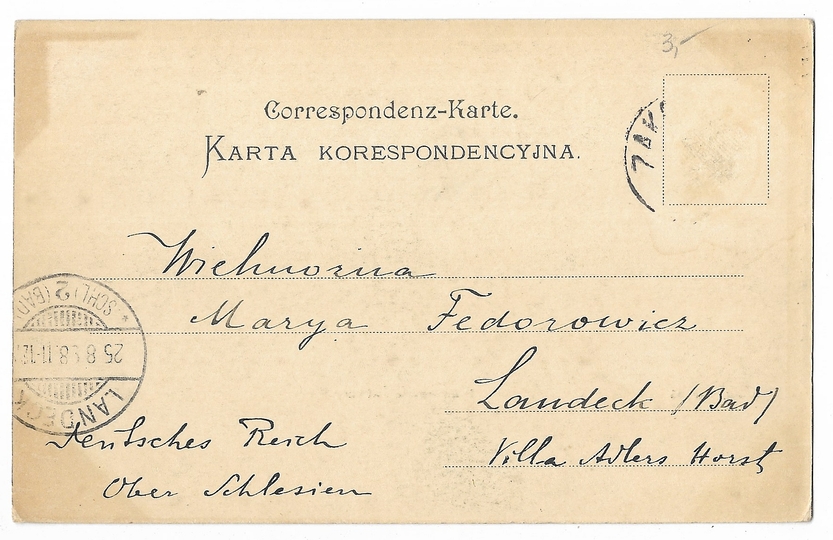 3,-
Correspondenz-Karte.
KARTA KORESPONDENCYJNA.
ZAK
Wielmożna
Marya Fedorowicz
Landeck (Bad)
Villa Adlers Horst
Deutsches Reich
Ober Schlesien
LANDECK
25 8 98.11-12
* (SCHL) 2 (BAD)